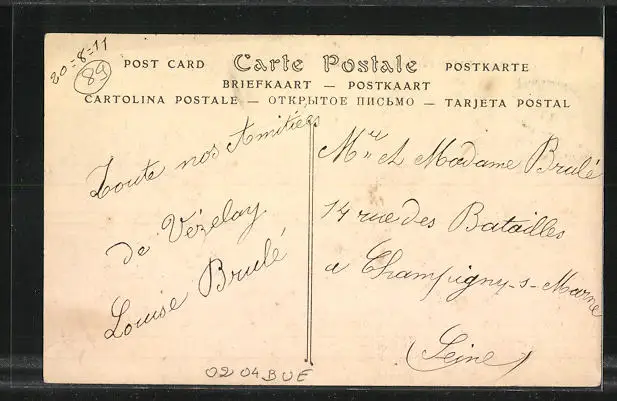 20=8=11
89
POST CARD Carte Postale POSTKARTE
BRIEFKAART — POSTKAART
CARTOLINA POSTALE — ОТКРЫТОЕ ПИСЬМО — TARJETA POSTAL
Toute nos Amitiées
de Vézelay
Louise Brulé
Mr et Madame Brulé
14 rue des Batailles
a Champigny-s-Marne
(Seine)
02 04 BUE